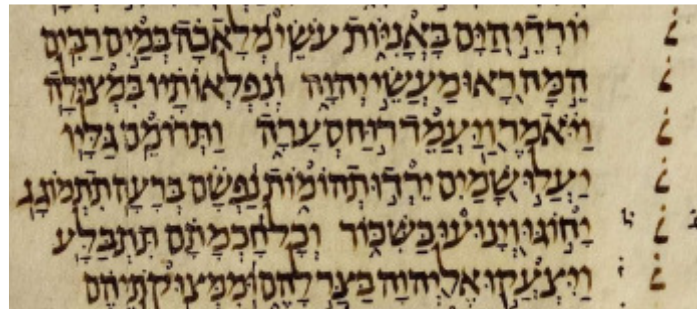 ׆ יוֹרְדֵ֣י הַ֭יָּם בָּאֳנִיּ֑וֹת עֹשֵׂ֥י מְ֝לָאכָ֗ה בְּמַ֣יִם רַבִּֽים
׆ הֵ֣מָּה רָ֭אוּ מַעֲשֵׂ֣י יְהוָ֑ה וְ֝נִפְלְאוֹתָ֗יו בִּמְצוּלָֽה
׆ וַיֹּ֗אמֶר וַֽ֭יַּעֲמֵד ר֣וּחַ סְעָרָ֑ה וַתְּרוֹמֵ֥ם גַּלָּֽיו
׆ יַעֲל֣וּ שָׁ֭מַיִם יֵרְד֣וּ תְהוֹמ֑וֹת נַ֝פְשָׁ֗ם בְּרָעָ֥ה תִתְמוֹגָֽג
׆ יָח֣וֹגּוּ וְ֭יָנוּעוּ כַּשִּׁכּ֑וֹר וְכָל חָ֝כְמָתָ֗ם תִּתְבַּלָּֽע
׆ וַיִּצְעֲק֣וּ אֶל יְ֭הוָה בַּצַּ֣ר לָהֶ֑ם וּֽ֝מִמְּצ֥וּקֹתֵיהֶ֗ם